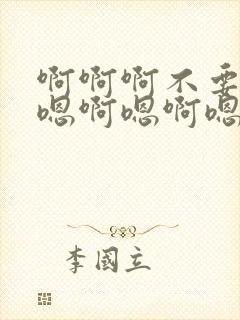 啊啊啊不要
嗯啊嗯啊嗯
李國立